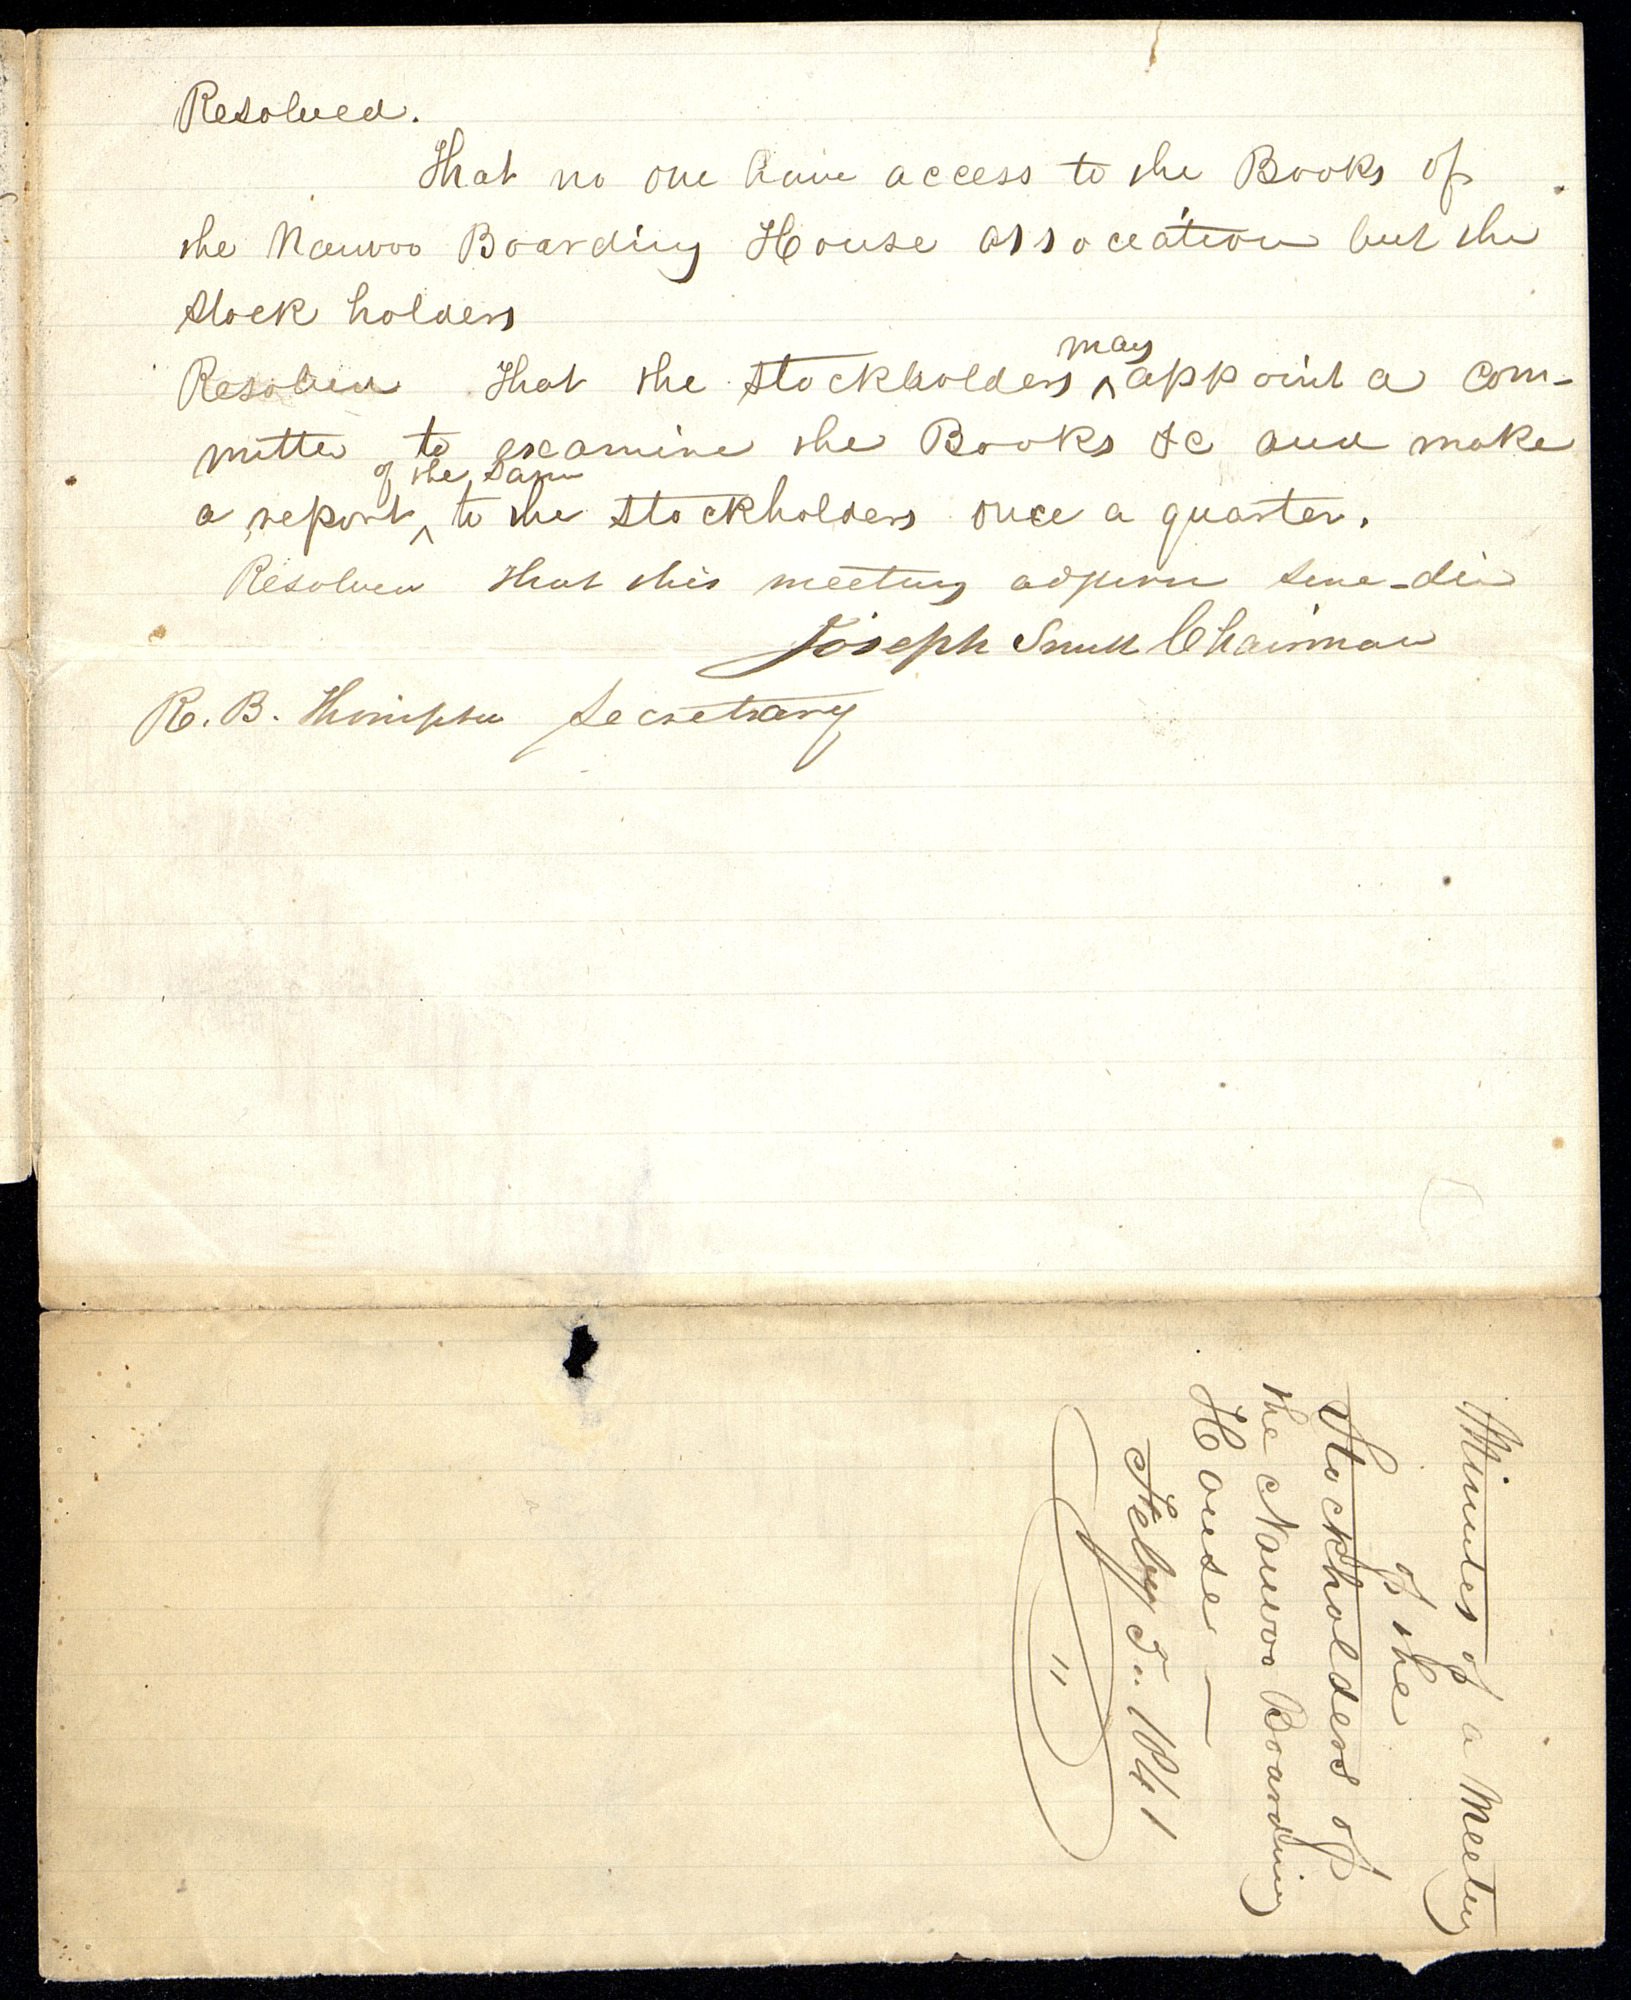 Resolved.
That no one have access to the Books of
the Nauvoo Boarding House association but the
stock holders
Resolved That the stockholders ^may appoint a com-
mittee to examine the Books &c and make
a report ^of the same to the stockholders once a quarter.
Resolved that this meeting adjourn sine-die
Joseph Smith Chairman
R. B. Thompson Secretary
Minutes of a Meeting
of the
Stockholders of
the Nauvoo Boarding
House —
Feby 5.. 1841
"